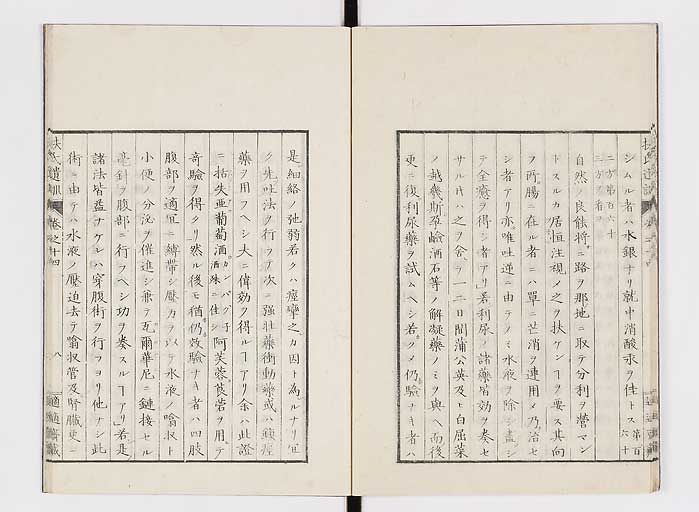 シムル者ハ水銀ナリ就中消酸汞ヲ佳トス第百六十
二方第百六十
三方ヲ看ヨ
自然ノ良能将ニ路ヲ那地ニ取テ分利ヲ營マン
トスルカ居恒注視メ之ヲ扶ケンヿヲ要ス其向
フ所腸ニ在ル者ニハ單ニ芒消ヲ連用メ乃治セ
シ者アリ亦唯吐逆ニ由テノミ水液ヲ除シ盡シ
テ全癒ヲ得シ者アリ若利尿ノ諸藥皆効ヲ奏セ
サル片ハ之ヲ舎テ一二日間蒲公英及ヒ白屈菜
ノ越幾斯孕鹼酒石等ノ解凝藥ノミヲ與ヘ而後
更ニ復利尿藥ヲ試ムヘシ若クメ仍驗ナキ者ハ
是細絡ノ弛弱若クハ痙攣之カ因ト為ルナリ宜
ク先吐法ヲ行フテ次ニ强壮藥衝動藥或ハ鎮痙
藥ヲ用フヘシ大ニ偉効ヲ得ルヿアリ余ハ此證
ニ括失亞葡萄酒カンパグ子酒殊ニ佳シ阿芙蓉莨菪ヲ用テ
奇驗ヲ得タリ然ル後モ猶仍效驗ナキ者ハ四肢
腹部ヲ適宜ニ縛帶シ壓力ヲ以テ水液ノ噏収ト
小便ノ分泌ヲ催進シ兼テ瓦爾華尼ニ鏈接セル
毫針ヲ腹部ニ行フヘシ功ヲ奏スルヿアリ若是
諸法皆益ナケレハ穿腹術ヲ行フヨリ他ナシ此
術ニ由テハ水液ノ壓迫去テ噏収管及腎臓更ニ
扶氏遺訓 卷之十四
八
適適齋藏